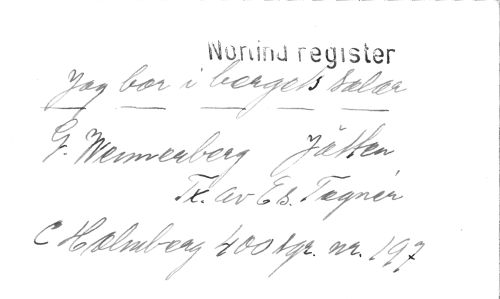 Norlind register
Jag bor i bergets salar
G. Wennerberg Jätten
Tx. av Es. Tegnér
C Holmberg 400 sgr. nr. 197